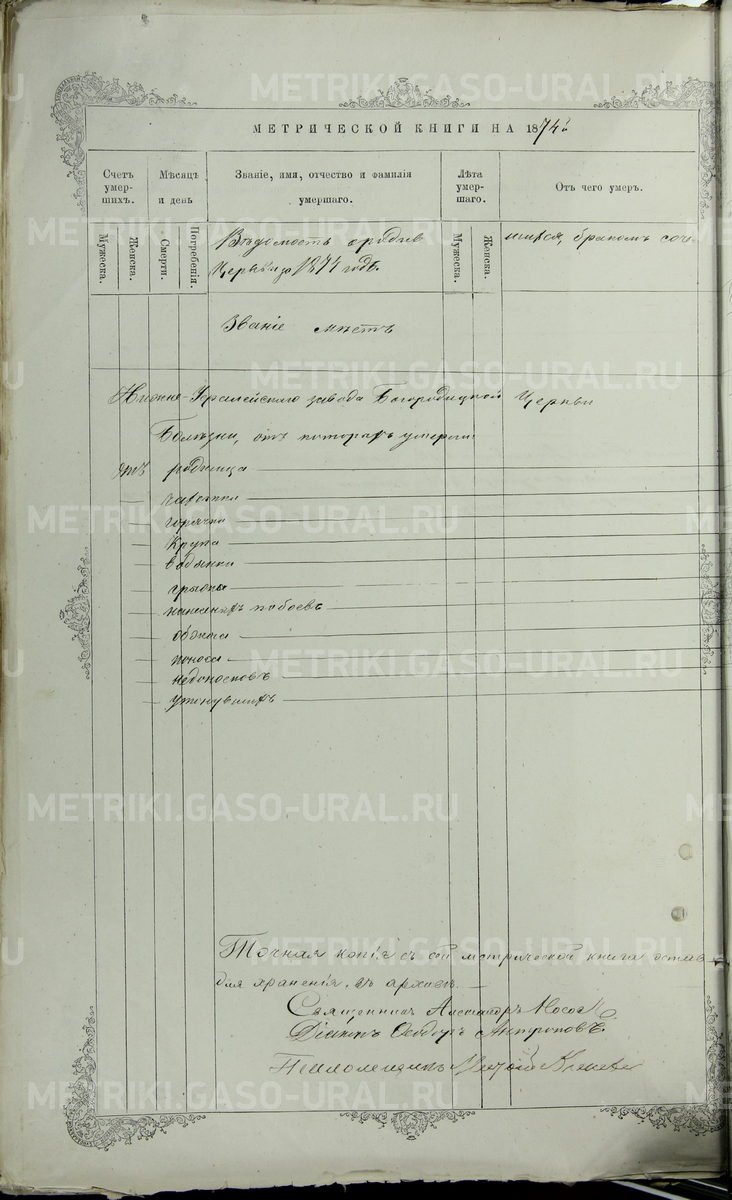 METRIKI.GASO-URAL.RU
МЕТРИЧЕСКОЙ КНИГИ НА 1874
Счетъ умер-шихъ.
Мѣсяцъ и день
Званіе, имя, отчество и фамилія умершаго.
Лѣта умер-шаго.
Отъ чего умеръ.
Мужеска.
Женска.
Смерти.
Погребенія.
Мужеска.
Женска.
Вѣдомость о родив
шихся, бракомъ соч-
Церкви за 1874 годъ.
Званіе мѣстъ
Нижне- завода Богородицкой Церкви
Болѣзни, отъ которыхъ умерли
отъ родимца
— чахотки
— горячки
— Крупа
— водянки
— грыжи
— побоевъ
— обжога
— поноса
— недоносковъ
Точная копія съ сей метрической книги остав
для хранения, въ архивѣ.
Священникъ Александръ Носов
Діаконъ Ѳеодоръ Антроповъ.
Псаломщикъ